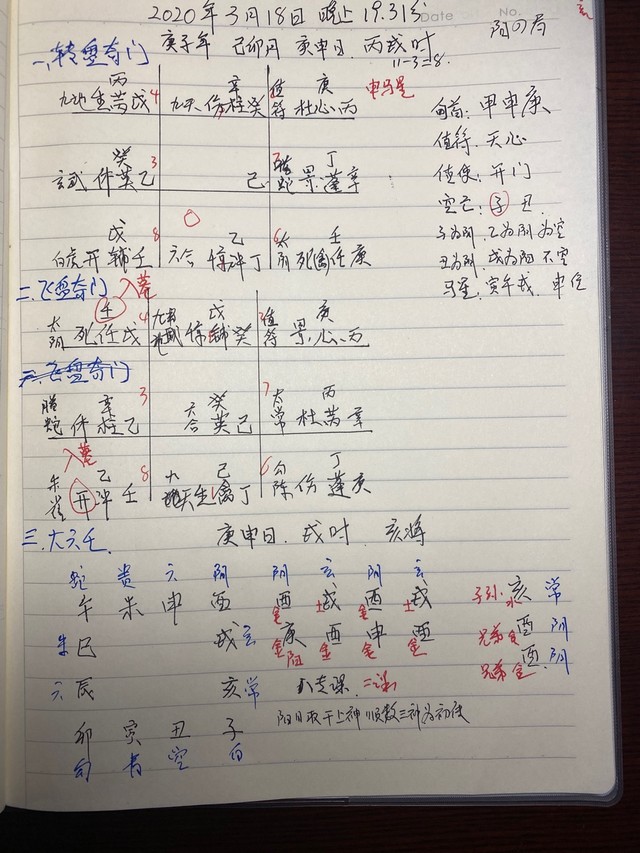 2020年3月18日 晚上19.31分
Date
No.
庚子年 己卯月 庚申日. 丙戌时
11-3=8.
阳四局
一、转盘奇门
丙 辛 庚
九地生芮戊 4 九天伤柱癸 值符 杜心丙 申马星
旬首: 甲申庚
值符: 天心
值使: 开门
空亡: 子 丑
子为阳, 乙为阴 为空
丑为阴, 戌为阳 不空
马星: 寅午戌. 申位
癸 3 7 丁
玄武 休英乙 己 螣蛇 景蓬辛
戊 8 乙 6 壬
白虎开辅壬 六合 惊冲丁 太阴 死禽任庚
二、飞盘奇门 入墓
壬 戊 庚
太阴 死任戊 4 惊辅癸 值符 景心丙
三、飞盘奇门
辛 3 癸 7 丙
螣蛇 休柱乙 六合 英己 太常 杜芮辛
入墓
乙 8 己 6 丁
朱雀 开冲壬 九天生禽丁 勾陈 伤蓬庚
三、大六壬. 庚申日. 戌时. 亥将
蛇 贵 六 阴 阴 玄 阴 玄
午 未 申 酉 酉金 戌土 酉金 戌土 子孙水 亥 常
朱巳 戌玄 庚金阳 酉金 申金 酉金 兄弟金 酉 阴
兄弟金 酉. 阴
六辰 亥常 八专课. 二课
阳日取干上神顺数三神为初传
卯 寅 丑 子
勾 青 空 白